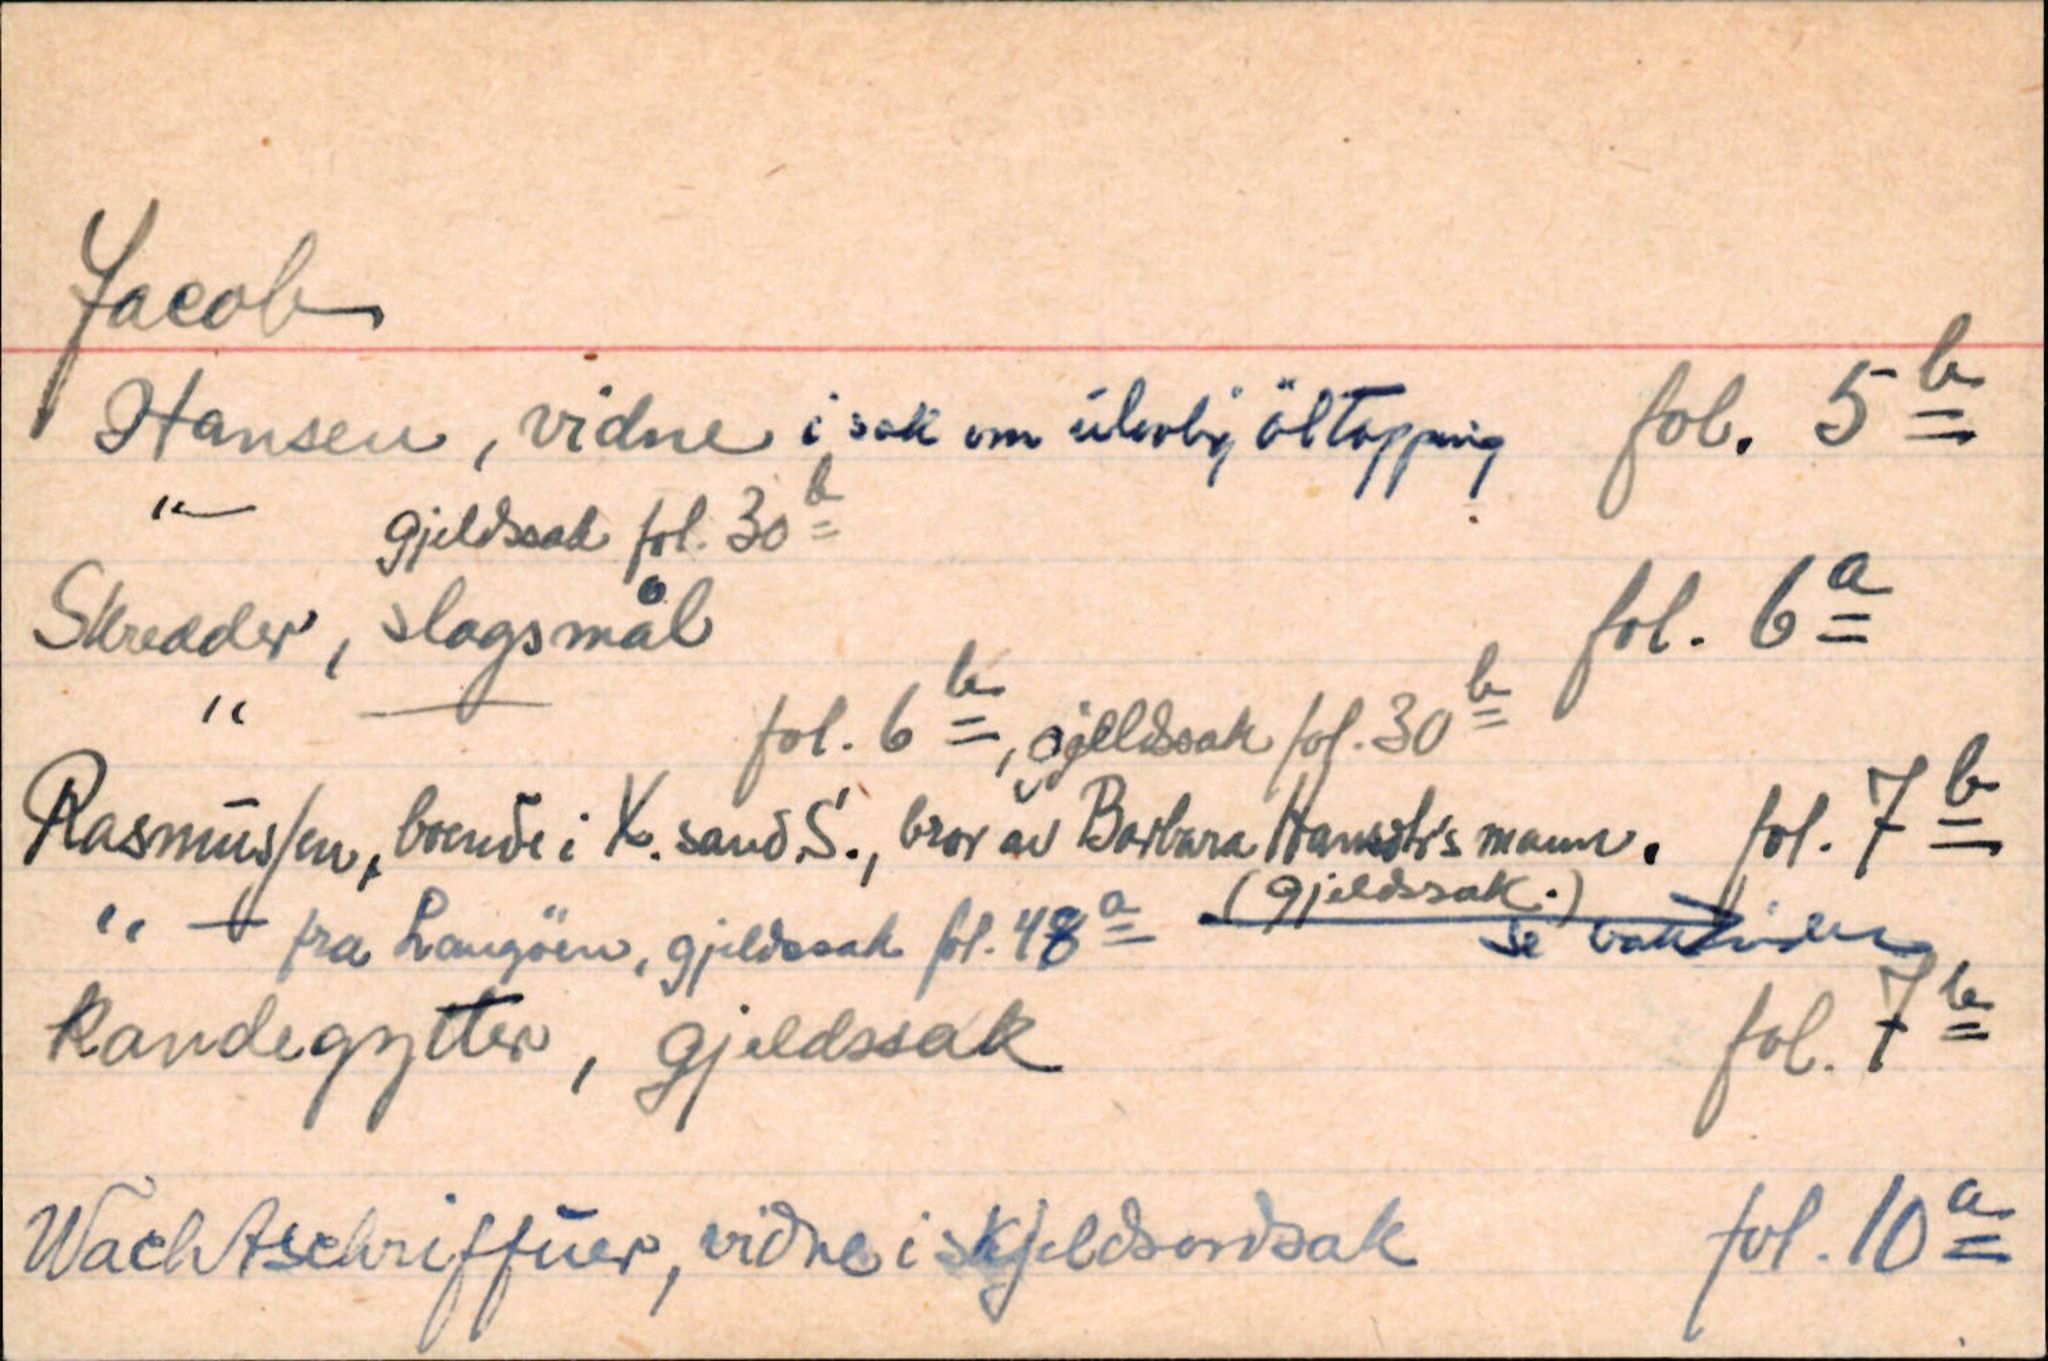 Jacob
Hansen, vidne i sak om ulovlig öltapping fol. 5b
"— gjeldssak fol. 30b
Skredder, slagsmål fol. 6a
" — fol. 6b, gjeldssak fol. 30b
Rasmussen, boende i X.sand S., bror av Barbara Hansdtr's mann. fol. 7b
(gjeldssak.)
" — fra Langöen, gjeldssak fol. 48a se baksiden
Kandegytter, gjeldssak fol. 7b
Wachtschriffuer, vidne i skjeldsordsak fol. 10a